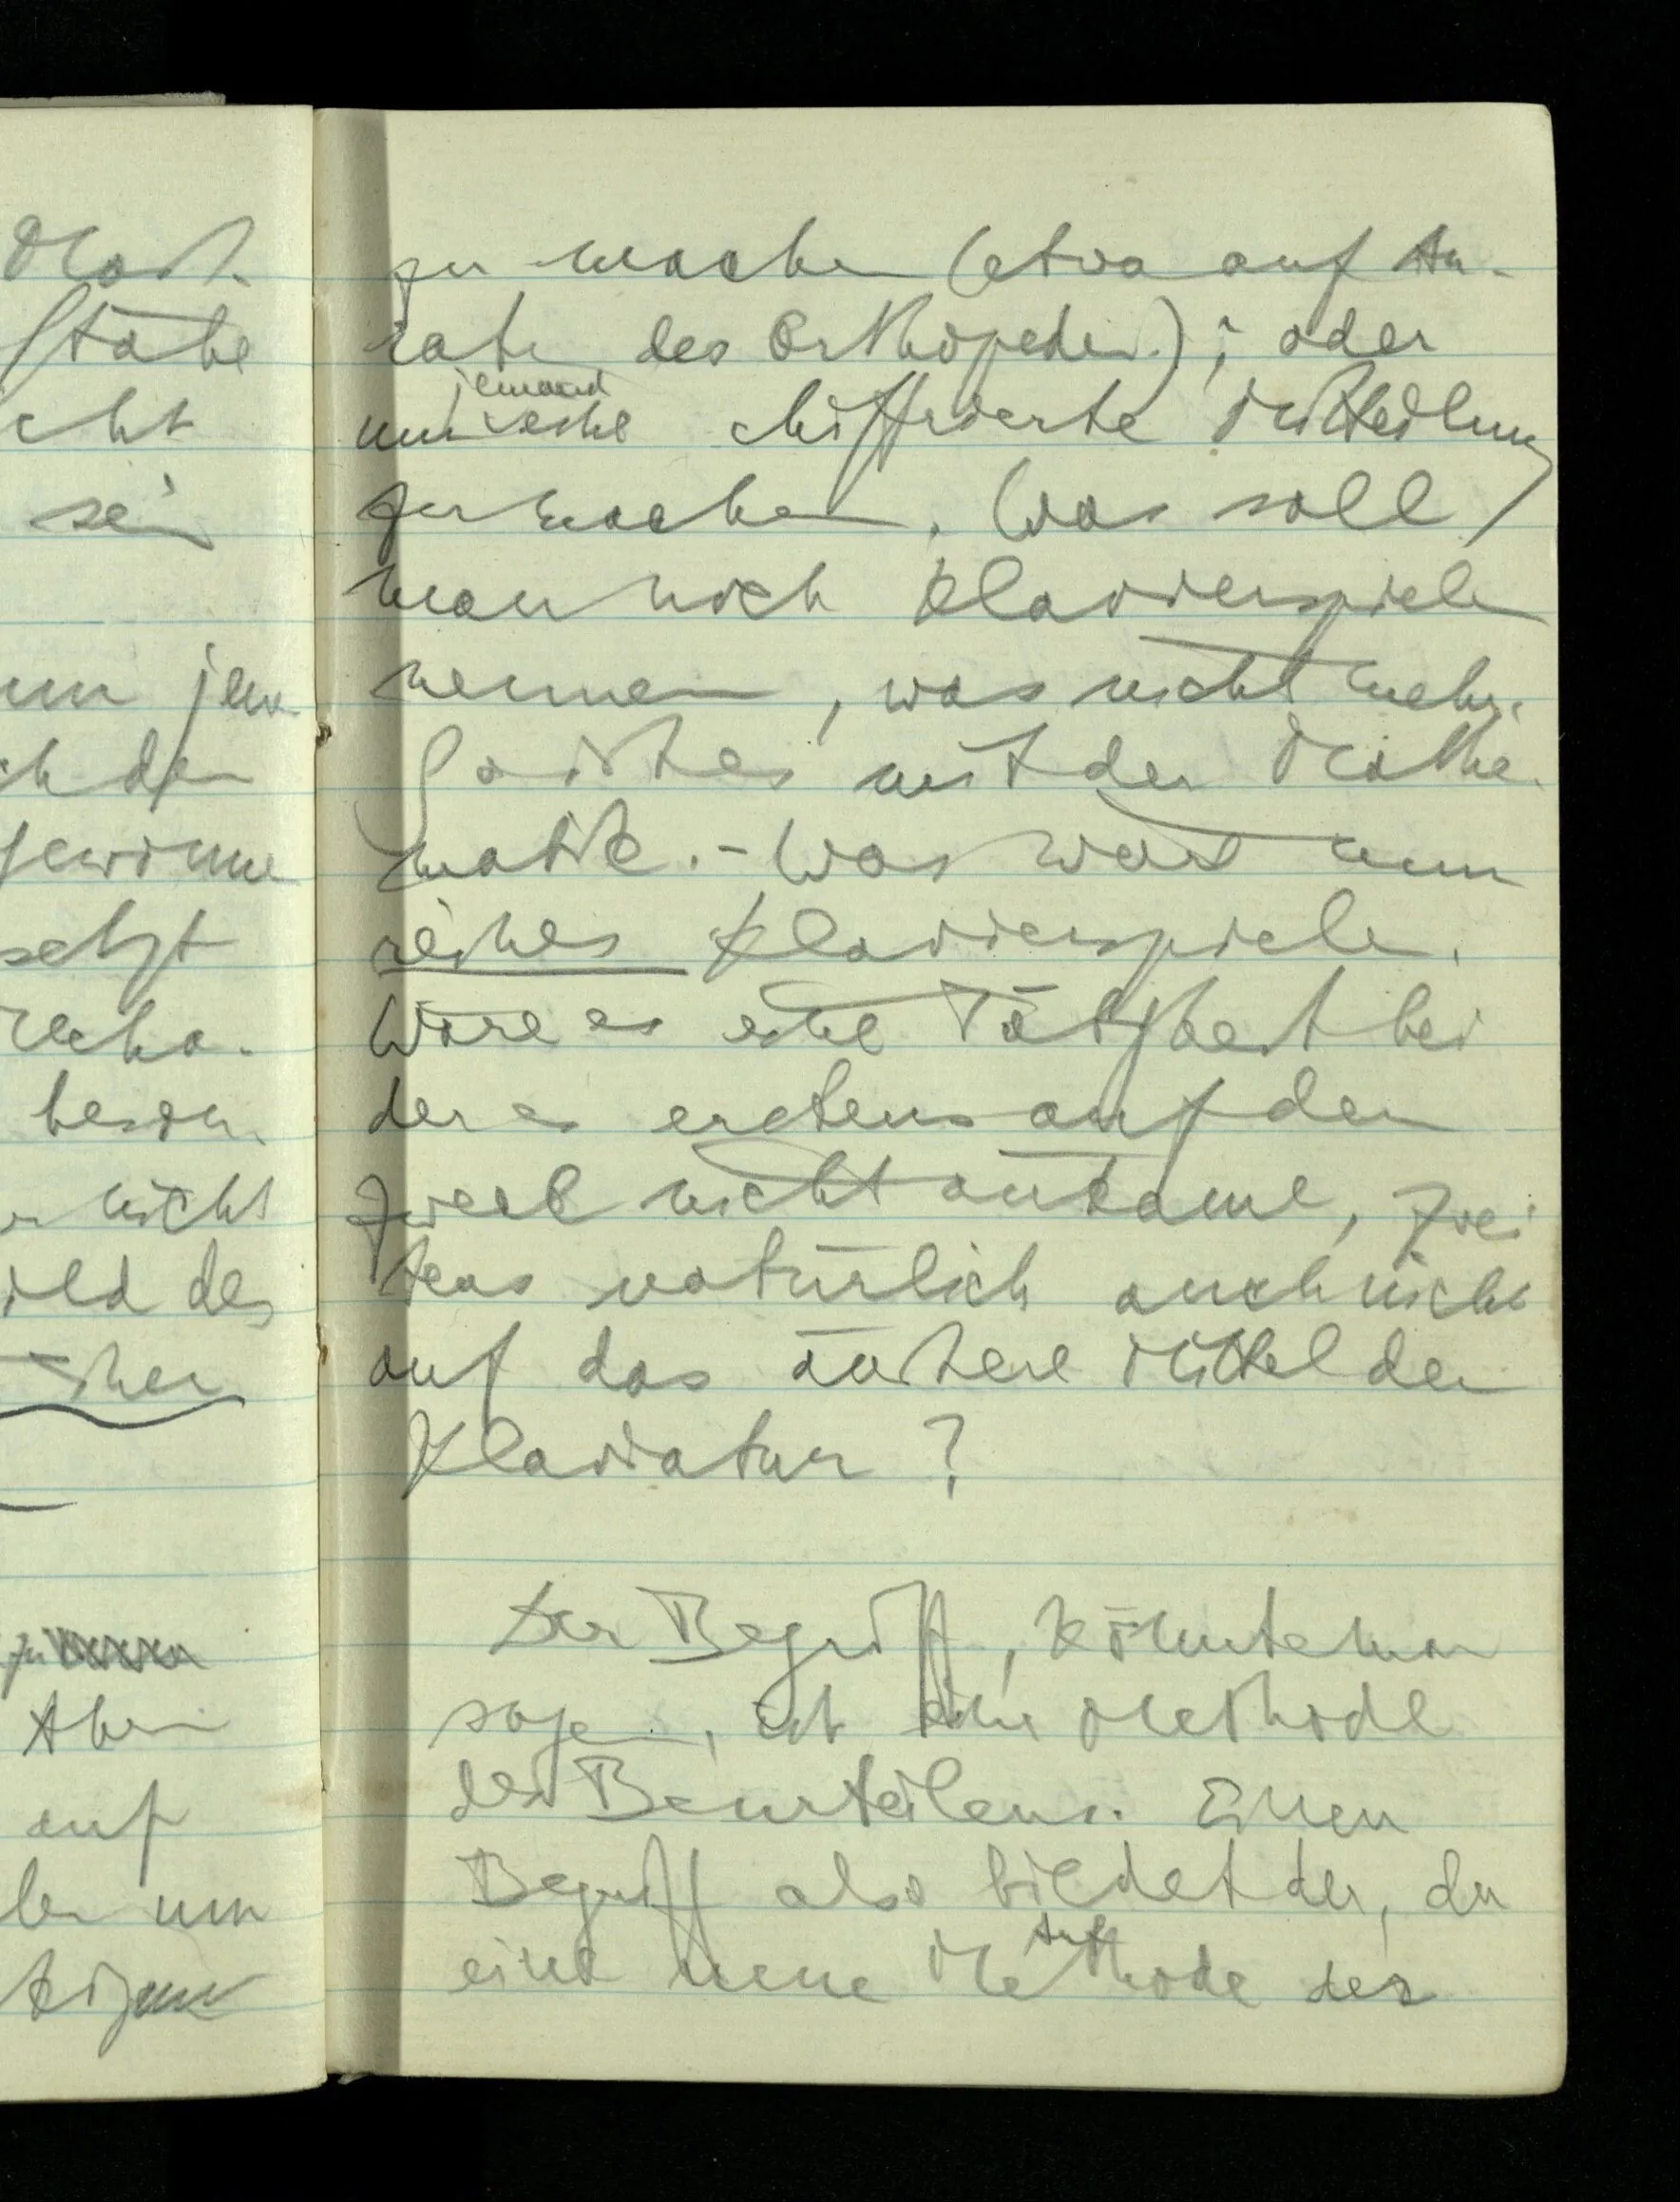 Maß-
Stäbe
cht
sein
um jem
ch den
gewinne
setzt
recha-
beson-
nicht
ild des
zu
Aber
auf
um
zu machen (etwa auf An-
raten des Orthopäden.); oder
jemand
um eine chiffrierte Mitteilung
zu machen. Was soll
man noch Klavierspielen
nennen, was nicht mehr.
So ist es mit der Mathe-
matik. – Was wäre nun
reines Klavierspielen.
Wäre es eine Tätigkeit bei
der es erstens auf den
Zweck nicht ankäme, zwei
tens natürlich auch nicht
auf das äußere Mittel der
Klaviatur?
Der Begriff, könnte man
sagen, ist eine Methode
des Beurteilens. Einen
Begriff also bildet der, der
eine neue Methode des